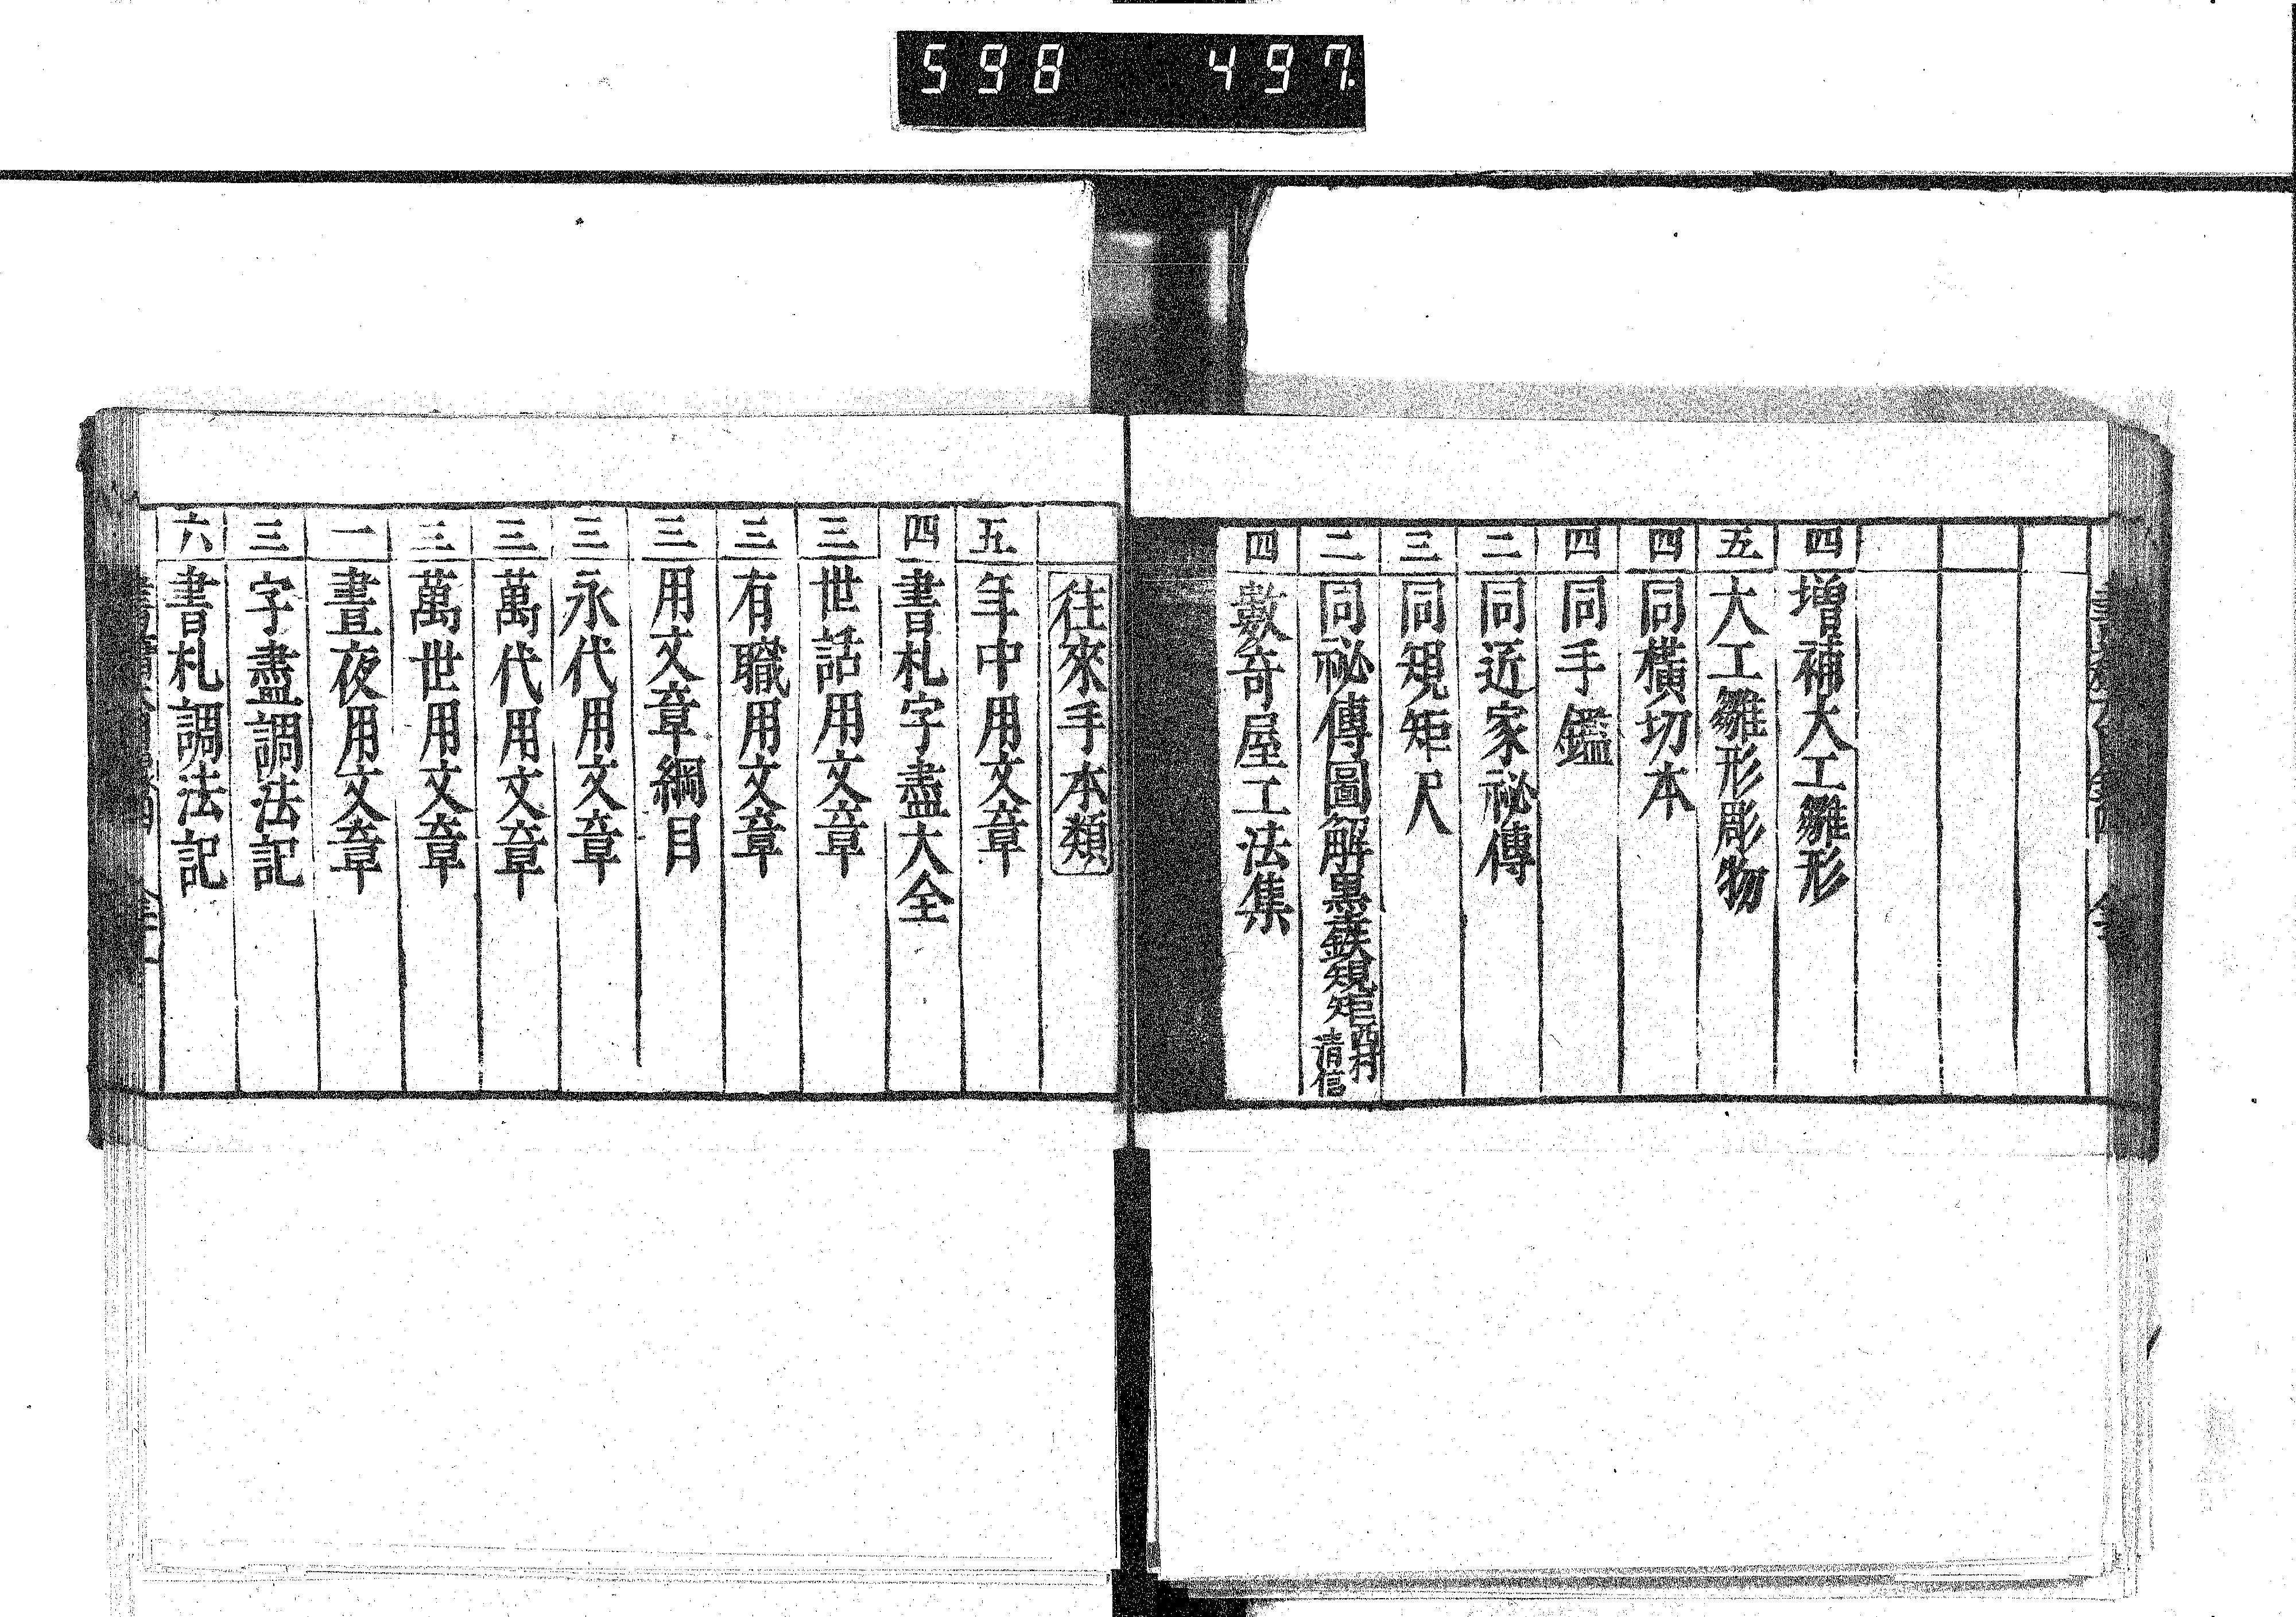 598 497.
四 増補大工雛形
五 大工雛形彫物
四 同横切本
四 同手鑑
二 同近家祕傳
三 同規矩尺
二 同祕傳圖解墨曲尺規矩 西村清信
四 數奇屋工法集
往來手本類
五 年中用文章
四 書札字盡大全
三 世話用文章
三 有職用文章
三 用文章綱目
三 永代用文章
三 萬代用文章
三 萬世用文章
一 晝夜用文章
三 字盡調法記
六 書札調法記